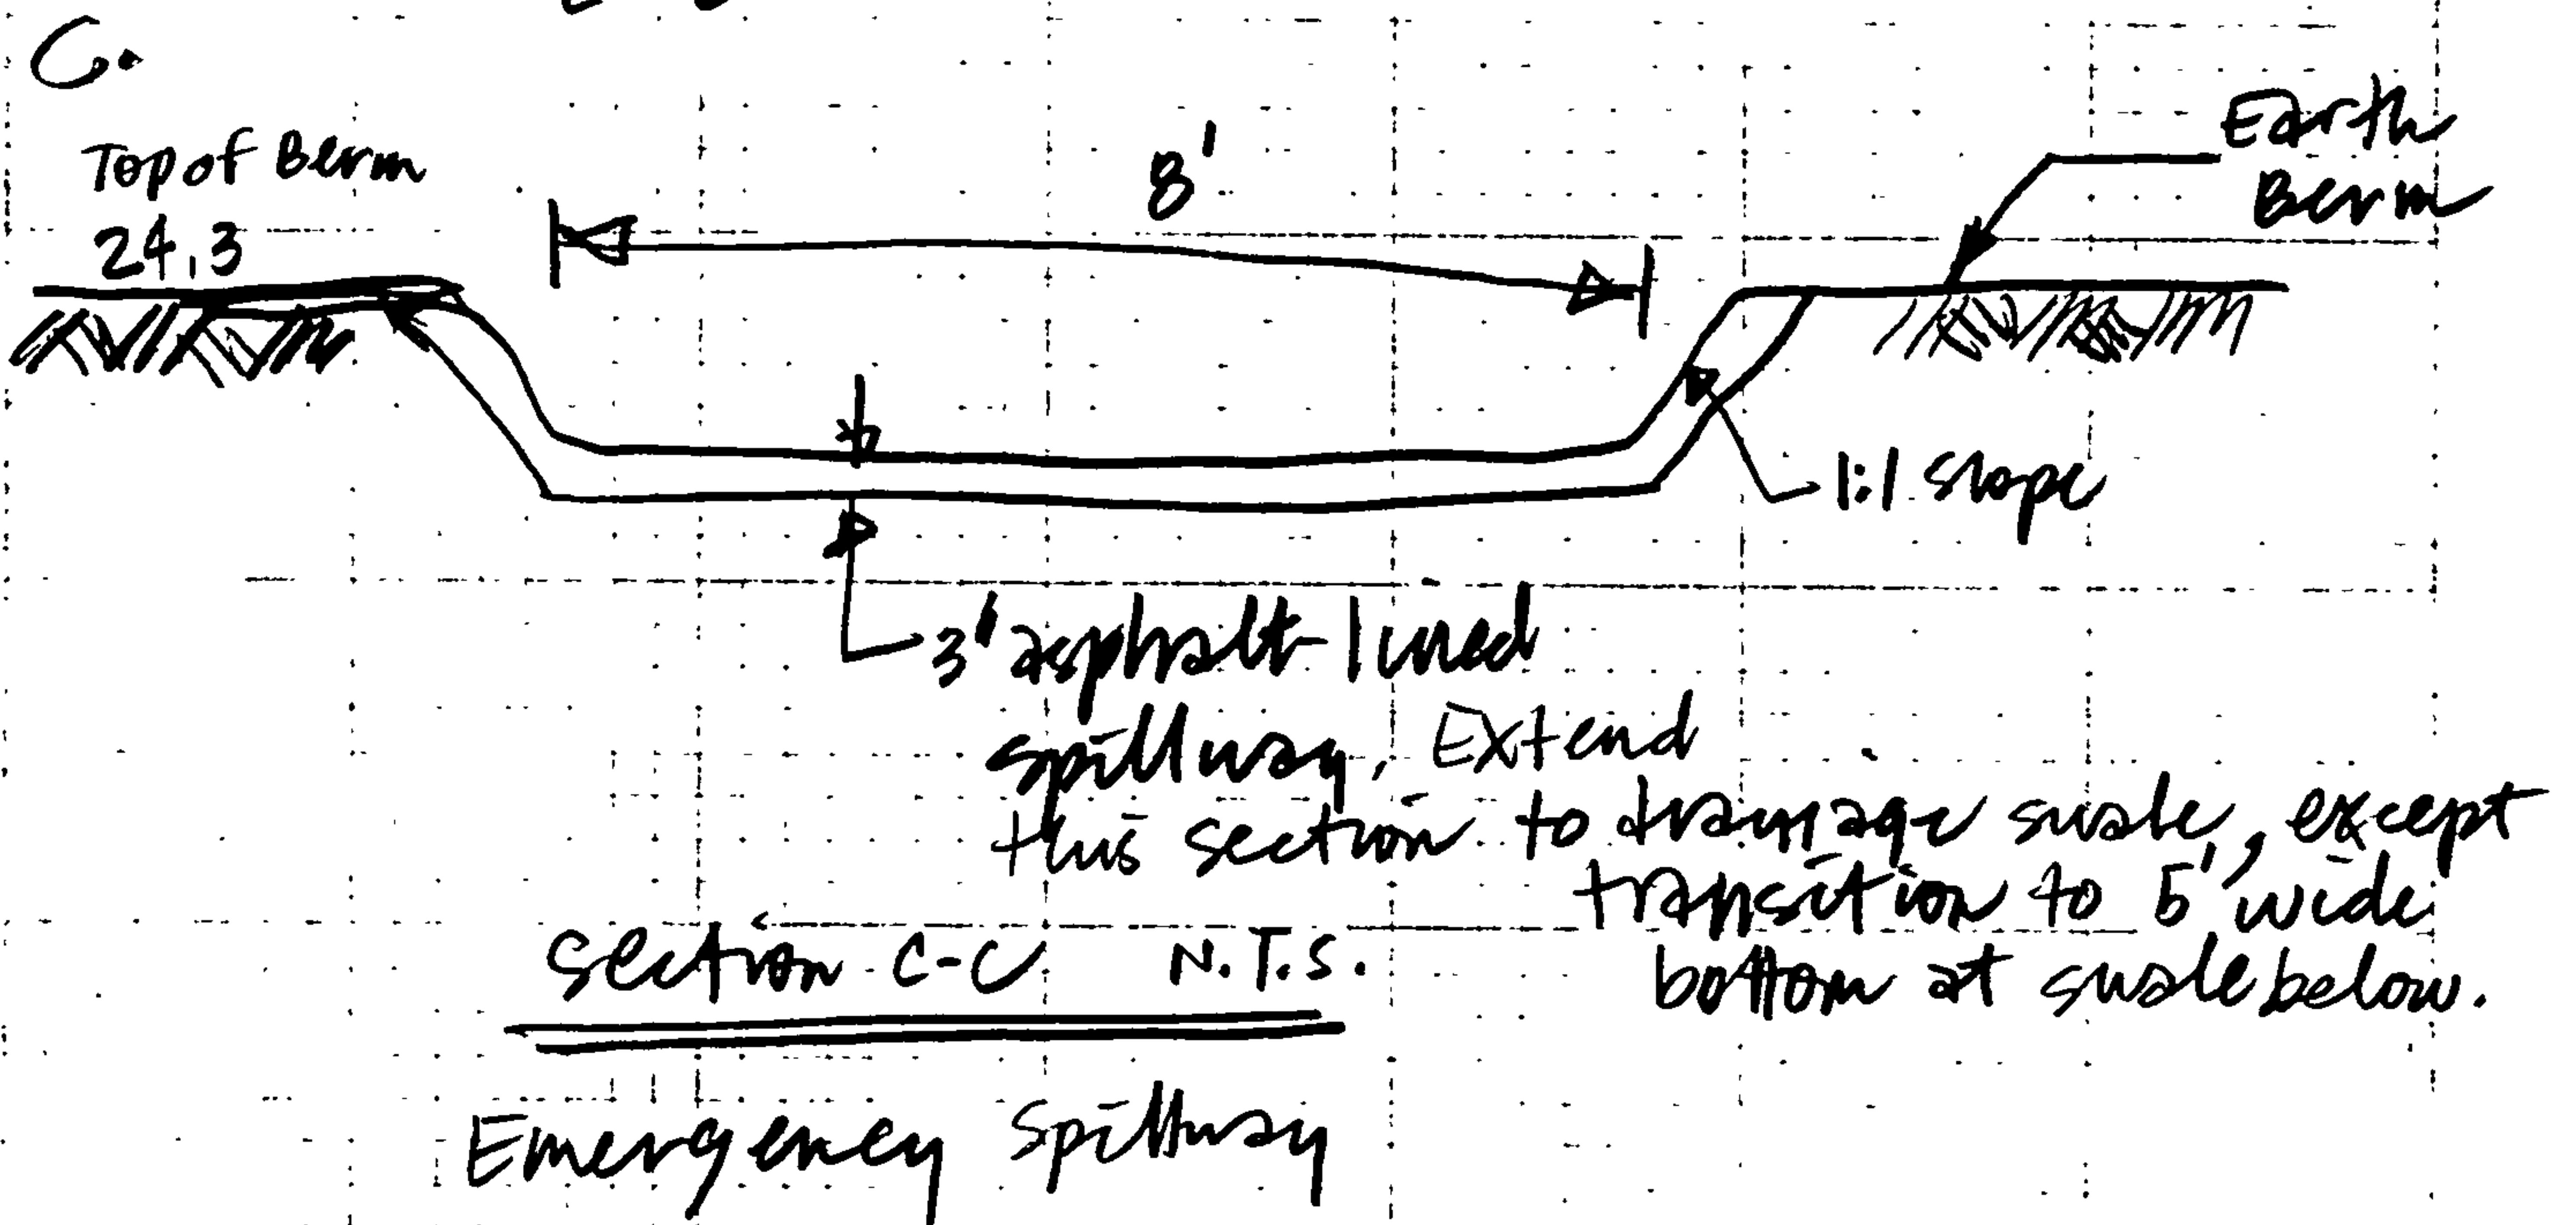 C.
Top of Berm
24.3
8'
Earth
Berm
1:1 slope
3' asphalt-lined
spillway, Extend
this section to drainage swale, except
transition to 5' wide
bottom at swale below.
Section C-C N.T.S.
Emergency Spillway